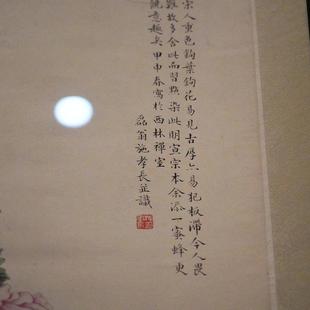 宋人重色鈎葉鈎花易見古厚亦易犯板滯今人畏
難故多舍此而習點染此明宣宗本余添一蜜蜂更
饒意趣矣甲申春寫於西林禪室
磊翁施孝長並識